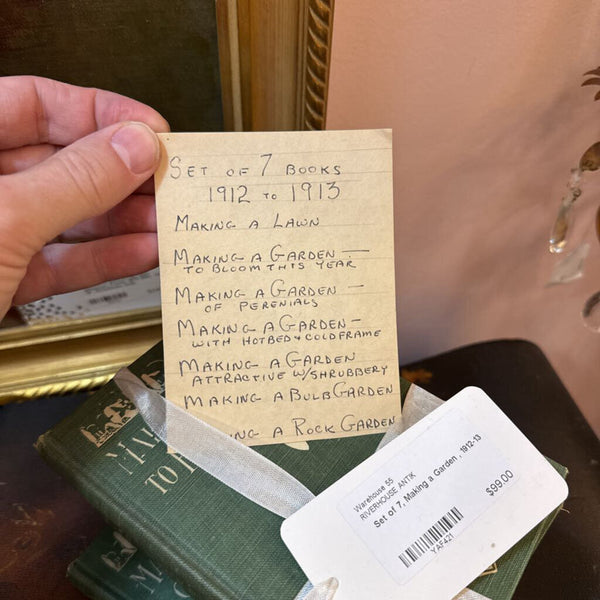 SET OF 7 BOOKS
1912 TO 1913
MAKING A LAWN
MAKING A GARDEN —
TO BLOOM THIS YEAR
MAKING A GARDEN —
OF PERENIALS
MAKING A GARDEN —
WITH HOTBED & COLDFRAME
MAKING A GARDEN
ATTRACTIVE W/SHRUBBERY
MAKING A BULB GARDEN
A ROCK GARDEN
Warehouse 55
RIVERHOUSE ANTIK
Set of 7, Making a Garden , 1912-13
$99.00
YAF421
TO